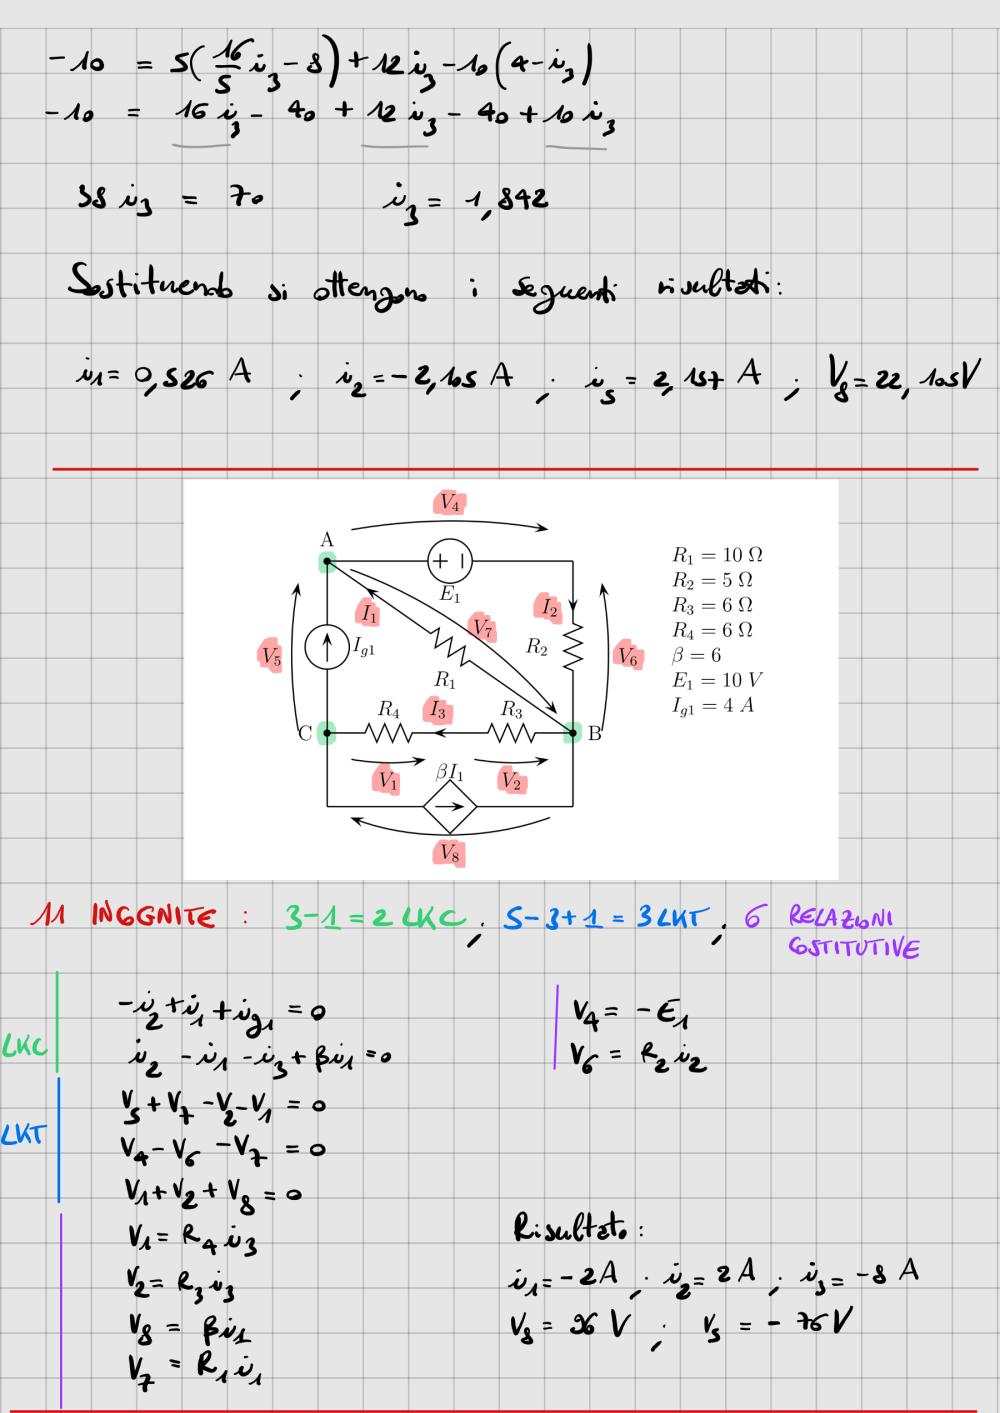 -10 = 5(16/5 i3 - 8) + 12 i3 - 10(4 - i3)
-10 = 16 i3 - 40 + 12 i3 - 40 + 10 i3
38 i3 = 70 i3 = 1,842
Sostituendo si ottengono i seguenti risultati:
i1 = 0,526 A ; i2 = -2,105 A ; i5 = 2,157 A ; V8 = 22,105V
V4
A
+ -
E1
I1
I2
V7
V5
Ig1
R1
R2
V6
R4
I3
R3
C
B
V1
βI1
V2
V8
R1 = 10 Ω
R2 = 5 Ω
R3 = 6 Ω
R4 = 6 Ω
β = 6
E1 = 10 V
Ig1 = 4 A
11 INCOGNITE : 3-1 = 2 LKC ; 5-3+1 = 3 LKT ; 6 RELAZIONI
COSTITUTIVE
LKC
-i2 + i1 + ig1 = 0
i2 - i1 - i3 + βi1 = 0
LKT
V5 + V7 - V2 - V1 = 0
V4 - V6 - V7 = 0
V1 + V2 + V8 = 0
V1 = R4 i3
V2 = R3 i3
V8 = βi1
V7 = R1 i1
V4 = -E1
V6 = R2 i2
Risultato:
i1 = -2A ; i2 = 2A ; i3 = -8 A
V8 = 96 V ; V5 = -76 V